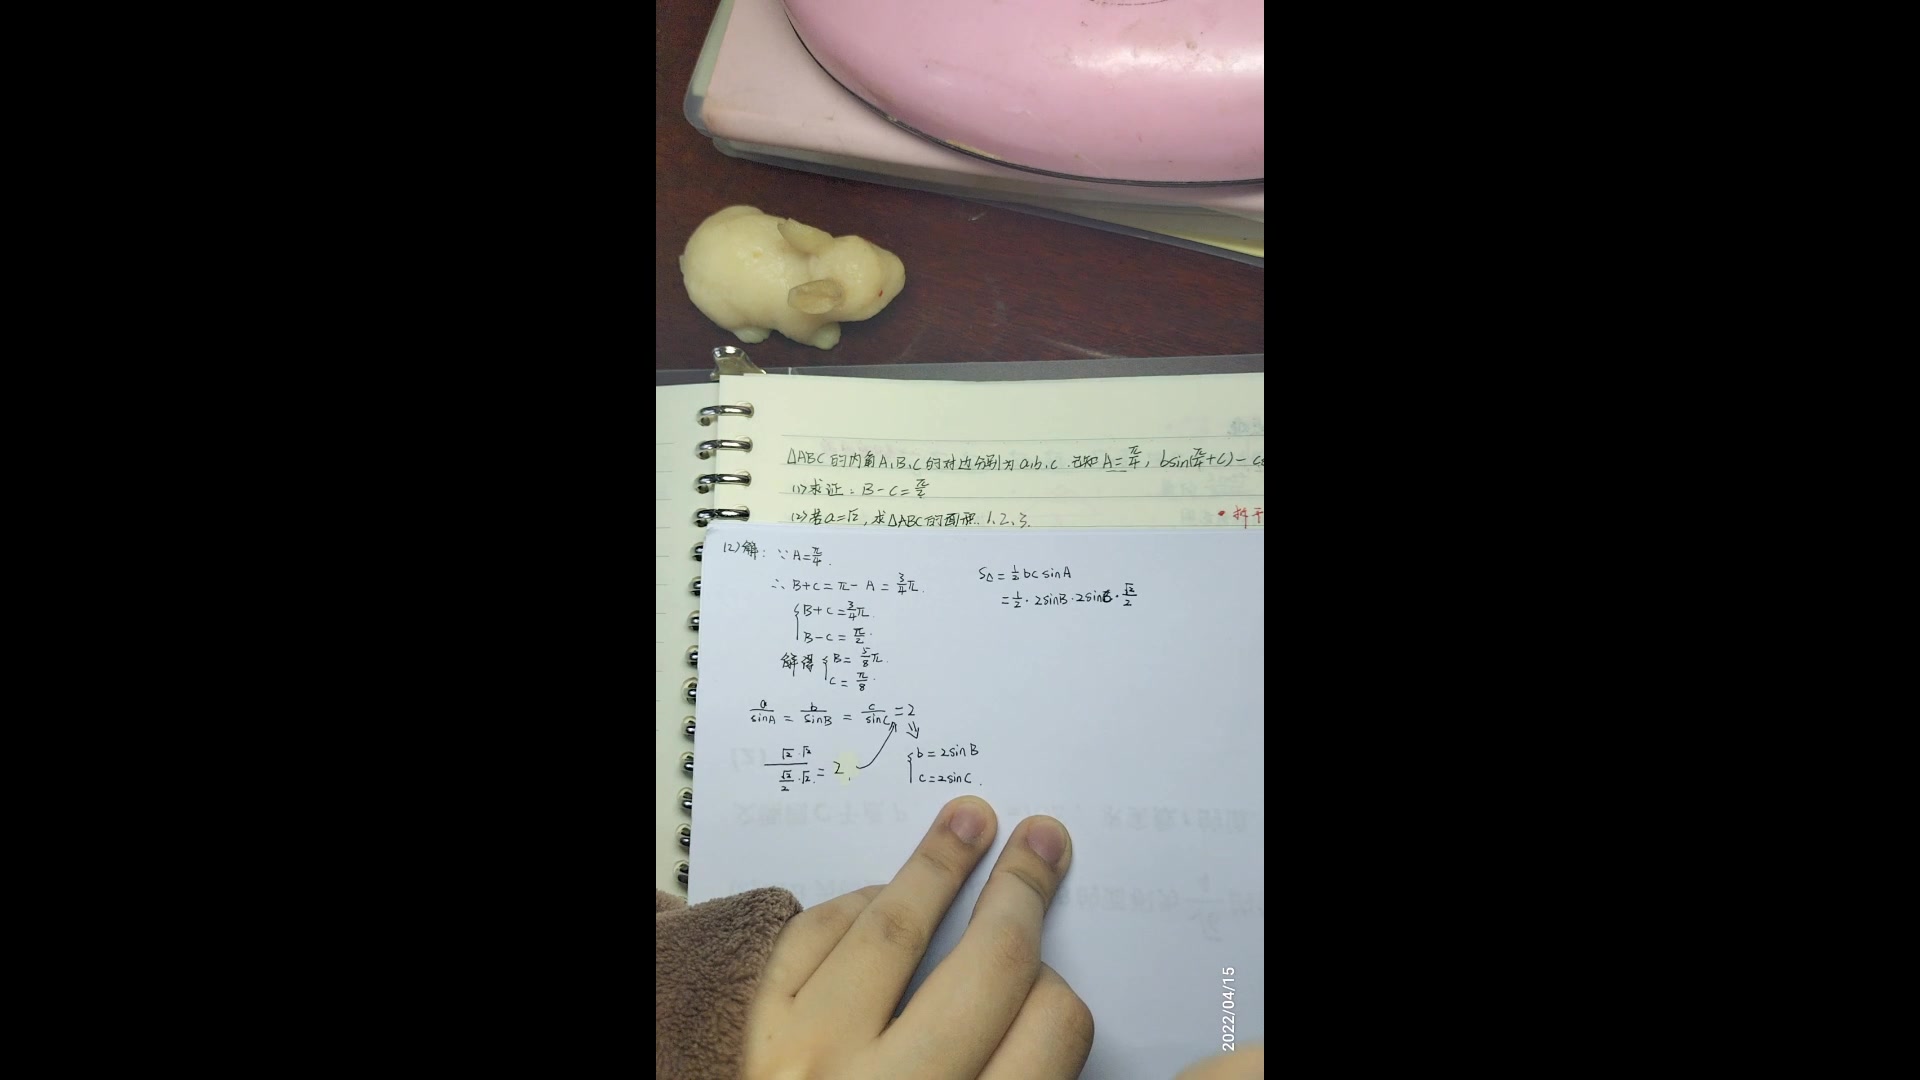 △ABC的内角A,B,C的对边分别为a,b,c.已知A=π/4, bsin(π/4+C)-c
(1)求证:B-C=π/2
(2)若a=√2,求△ABC的面积.1,2,3.
(2)解:∵A=π/4.
∴B+C=π-A=3/4π.
{B+C=3/4π.
B-C=π/2.
解得{B=5/8π.
C=π/8.
a/sinA=b/sinB=c/sinC=2
√2·√2/(√2/2·√2)=2.
{b=2sinB
c=2sinC.
S△=1/2bcsinA
=1/2·2sinB·2sinC·√2/2
2022/04/15